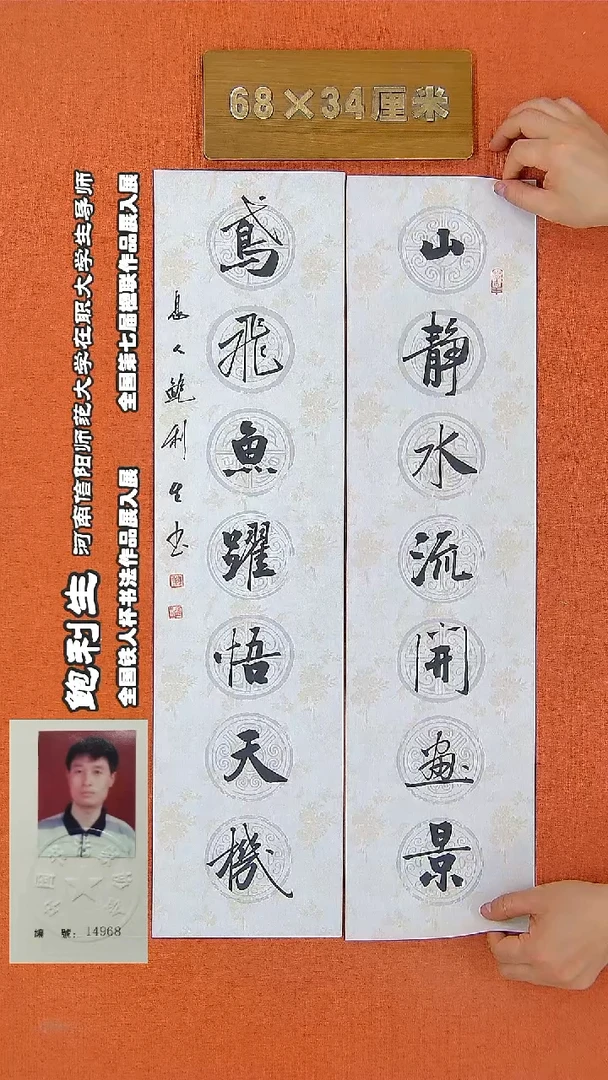 68×34厘米
山靜水流開畫景
鳶飛魚躍悟天機
息人鮑利生书
鲍利生 河南信阳师范大学在职大学生导师
全国铁人杯书法作品展入展 全国第七届楹联作品展入展
編 號: 14968